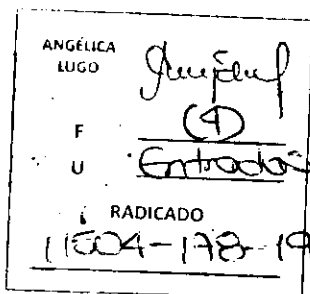 ANGÉLICA
LUGO
F (4)
U Entrada
RADICADO
11504-178-19